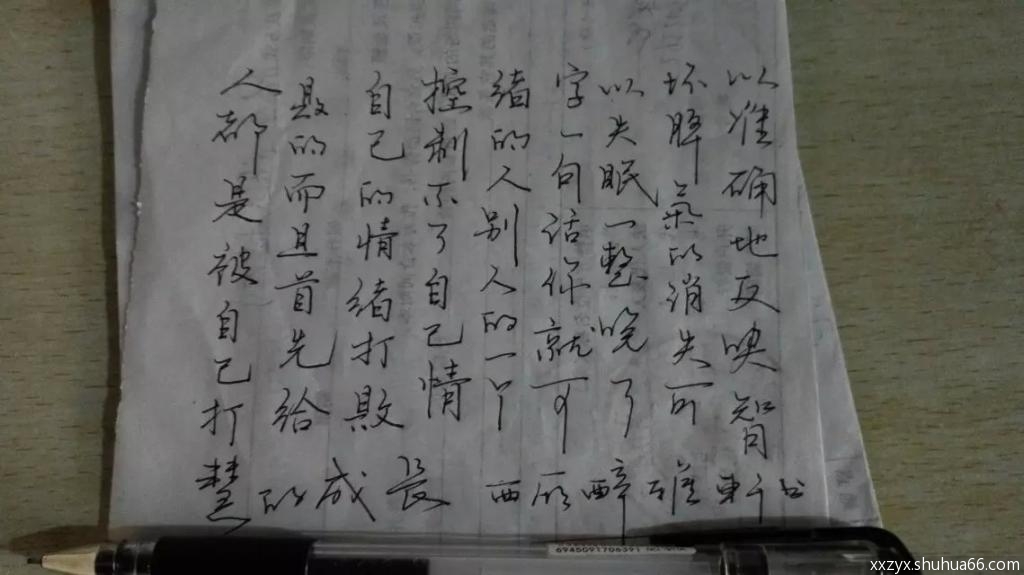 人都是被自己打
敗的而且首先给
自己的情绪打敗
控制不了自己情
绪的人别人的一个
字一句话你就可
以失眠一整晚了
坏脾氣的消失可
以准确地反映智
慧的成長
西 醉雅軒书
6945091706391
xxzyx.shuhua66.com